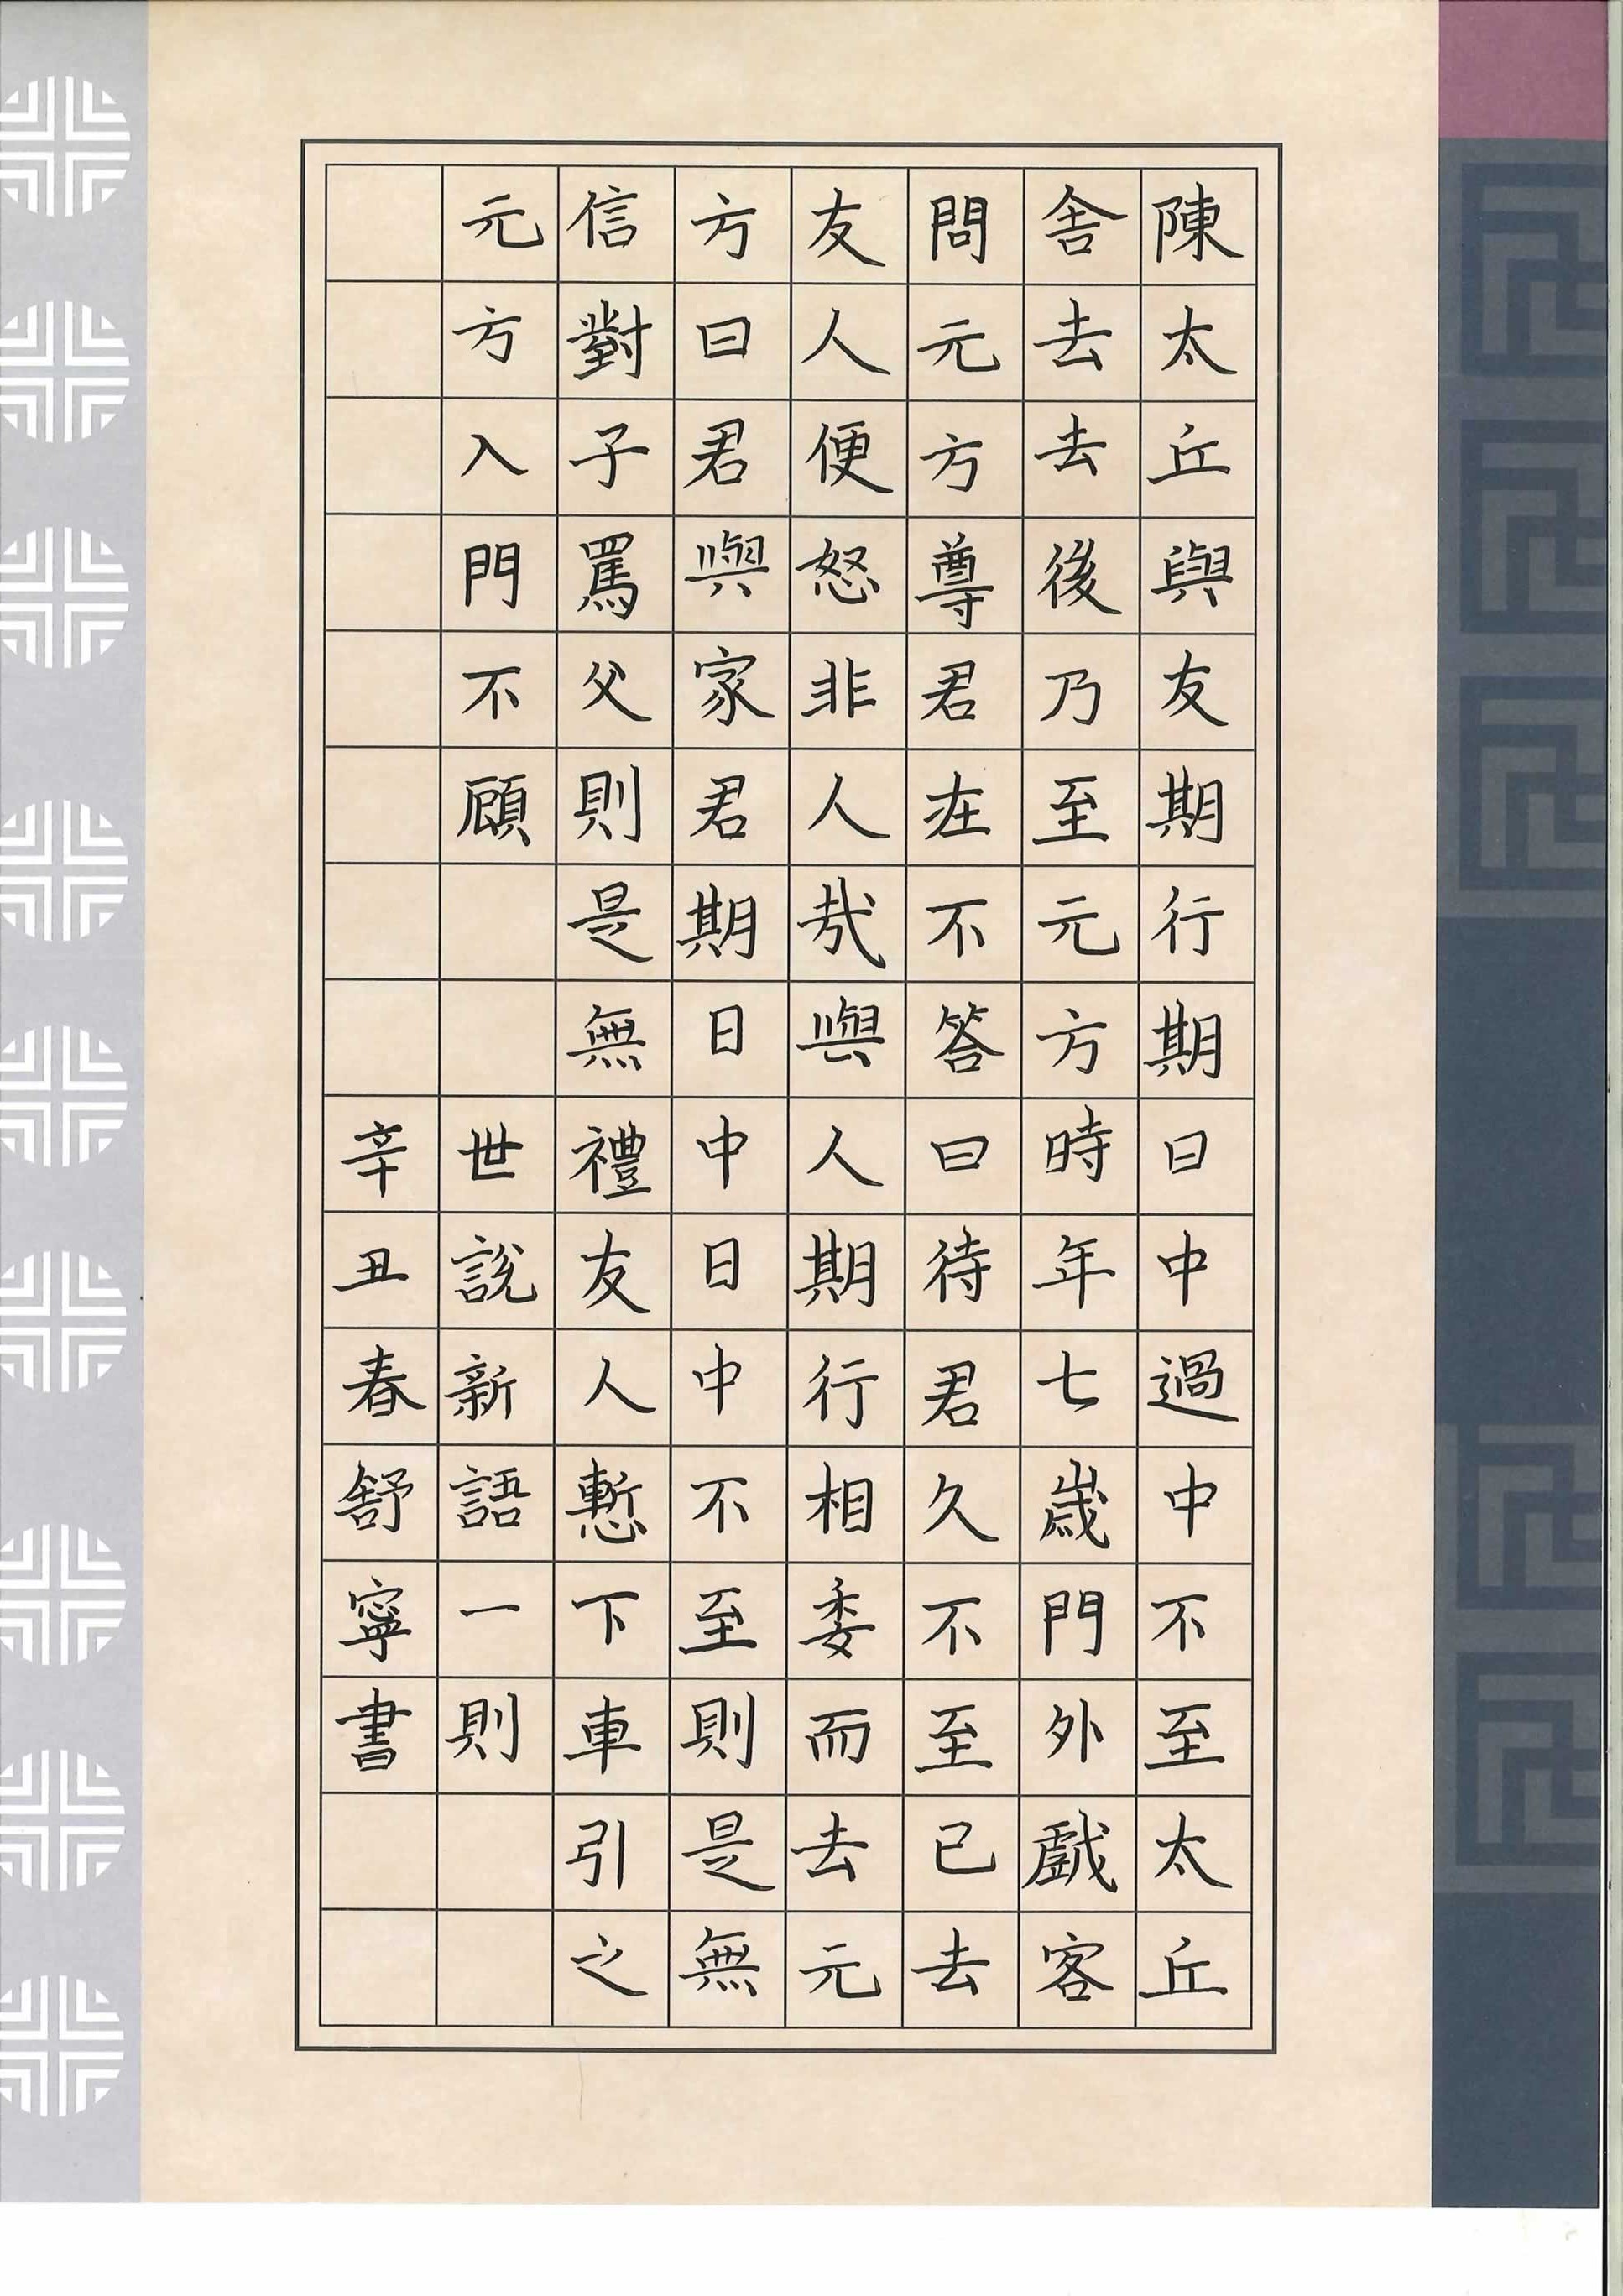 陳太丘與友期行期日中過中不至太丘
舍去去後乃至元方時年七歲門外戲客
問元方尊君在不答曰待君久不至已去
友人便怒非人哉與人期行相委而去元
方曰君與家君期日中日中不至則是無
信對子罵父則是無禮友人慙下車引之
元方入門不顧世說新語一則
辛丑春舒寧書